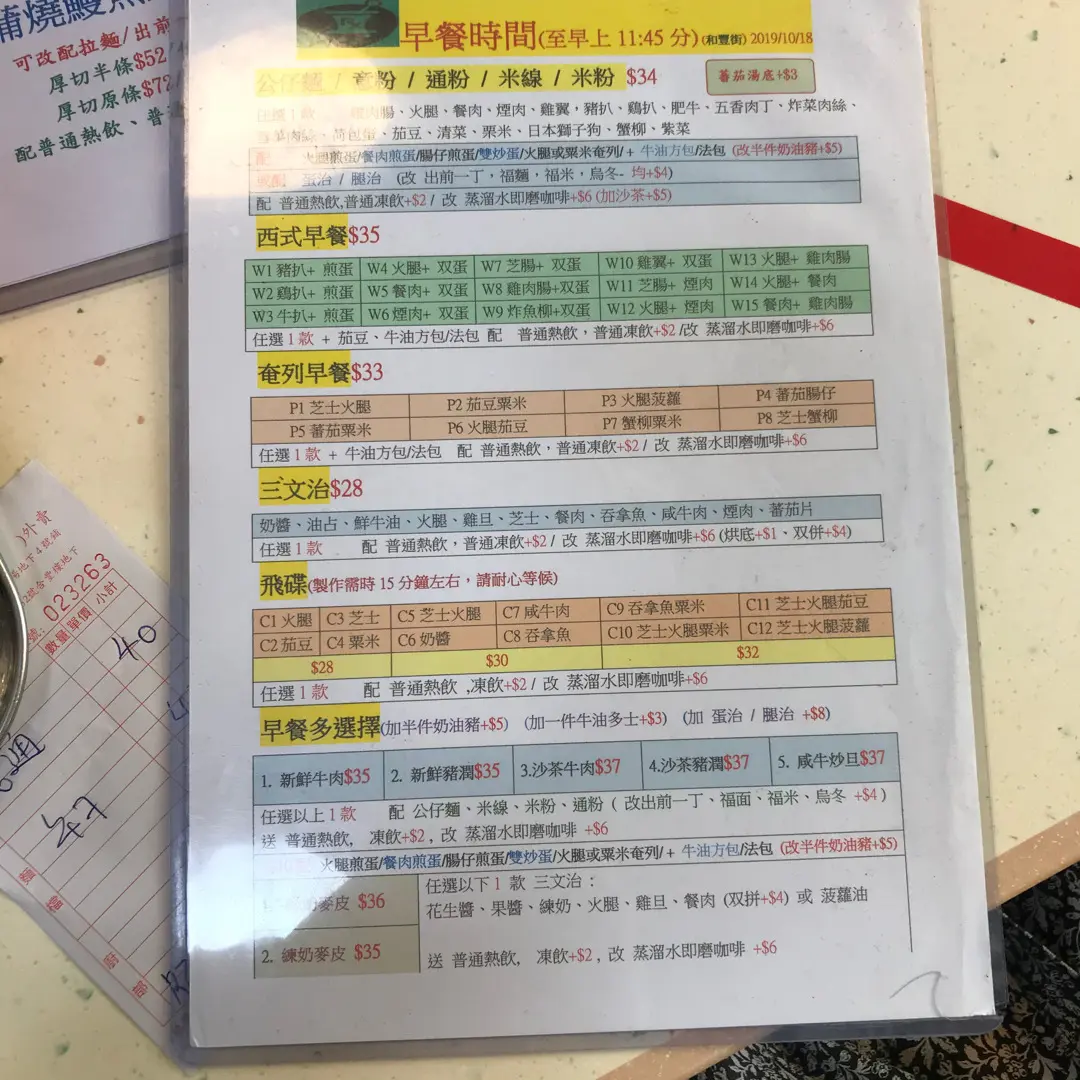 蒲燒鰻魚
可改配拉麵/出前
厚切半條$52
厚切原條$72
配普通熱飲、普通
早餐時間(至早上 11:45 分) (和豐街) 2019/10/18
公仔麵 / 意粉 / 通粉 / 米線 / 米粉 $34
蕃茄湯底+$3
任選 1 款 雞肉腸、火腿、餐肉、煙肉、雞翼，豬扒、鷄扒、肥牛、五香肉丁、炸菜肉絲、
肉絲、荷包蛋、茄豆、清菜、粟米、日本獅子狗、蟹柳、紫菜
配 火腿煎蛋/餐肉煎蛋/腸仔煎蛋/雙炒蛋/火腿或粟米奄列/+ 牛油方包/法包 (改半件奶油豬+$5)
或配 蛋治 / 腿治 (改 出前一丁，福麵，福米，烏冬- 均+$4)
配 普通熱飲,普通凍飲+$2 / 改 蒸溜水即磨咖啡+$6 (加沙茶+$5)
西式早餐$35
W1 豬扒+ 煎蛋 W4 火腿+ 双蛋 W7 芝腸+ 双蛋 W10 雞翼+ 双蛋 W13 火腿+ 雞肉腸
W2 鷄扒+ 煎蛋 W5 餐肉+ 双蛋 W8 雞肉腸+双蛋 W11 芝腸+ 煙肉 W14 火腿+ 餐肉
W3 牛扒+ 煎蛋 W6 煙肉+ 双蛋 W9 炸魚柳+双蛋 W12 火腿+ 煙肉 W15 餐肉+ 雞肉腸
任選 1 款 + 茄豆、牛油方包/法包 配 普通熱飲，普通凍飲+$2 /改 蒸溜水即磨咖啡+$6
奄列早餐$33
P1 芝士火腿 P2 茄豆粟米 P3 火腿菠蘿 P4 蕃茄腸仔
P5 蕃茄粟米 P6 火腿茄豆 P7 蟹柳粟米 P8 芝士蟹柳
任選 1 款 + 牛油方包/法包 配 普通熱飲，普通凍飲+$2 / 改 蒸溜水即磨咖啡+$6
三文治$28
奶醬、油占、鮮牛油、火腿、雞旦、芝士、餐肉、吞拿魚、咸牛肉、煙肉、蕃茄片
任選 1 款 配 普通熱飲，普通凍飲+$2 / 改 蒸溜水即磨咖啡+$6 (烘底+$1、双併+$4)
飛碟(製作需時 15 分鐘左右，請耐心等候)
C1 火腿 C3 芝士 C5 芝士火腿 C7 咸牛肉 C9 吞拿魚粟米 C11 芝士火腿茄豆
C2 茄豆 C4 粟米 C6 奶醬 C8 吞拿魚 C10 芝士火腿粟米 C12 芝士火腿菠蘿
$28 $30 $32
任選 1 款 配 普通熱飲 ,凍飲+$2 / 改 蒸溜水即磨咖啡+$6
早餐多選擇(加半件奶油豬+$5) (加一件牛油多士+$3) (加 蛋治 / 腿治 +$8)
1. 新鮮牛肉$35 2. 新鮮豬潤$35 3.沙茶牛肉$37 4.沙茶豬潤$37 5. 咸牛炒旦$37
任選以上 1 款 配 公仔麵、米線、米粉、通粉 ( 改出前一丁、福面、福米、烏冬 +$4 )
送 普通熱飲, 凍飲+$2 , 改 蒸溜水即磨咖啡 +$6
火腿煎蛋/餐肉煎蛋/腸仔煎蛋/雙炒蛋/火腿或粟米奄列/+ 牛油方包/法包 (改半件奶油豬+$5)
麥皮 $36
任選以下 1 款 三文治 :
花生醬、果醬、練奶、火腿、雞旦、餐肉 (双拼+$4) 或 菠蘿油
2. 練奶麥皮 $35
送 普通熱飲, 凍飲+$2 , 改 蒸溜水即磨咖啡 +$6
外賣
023263
數量 單價 小計
40
47